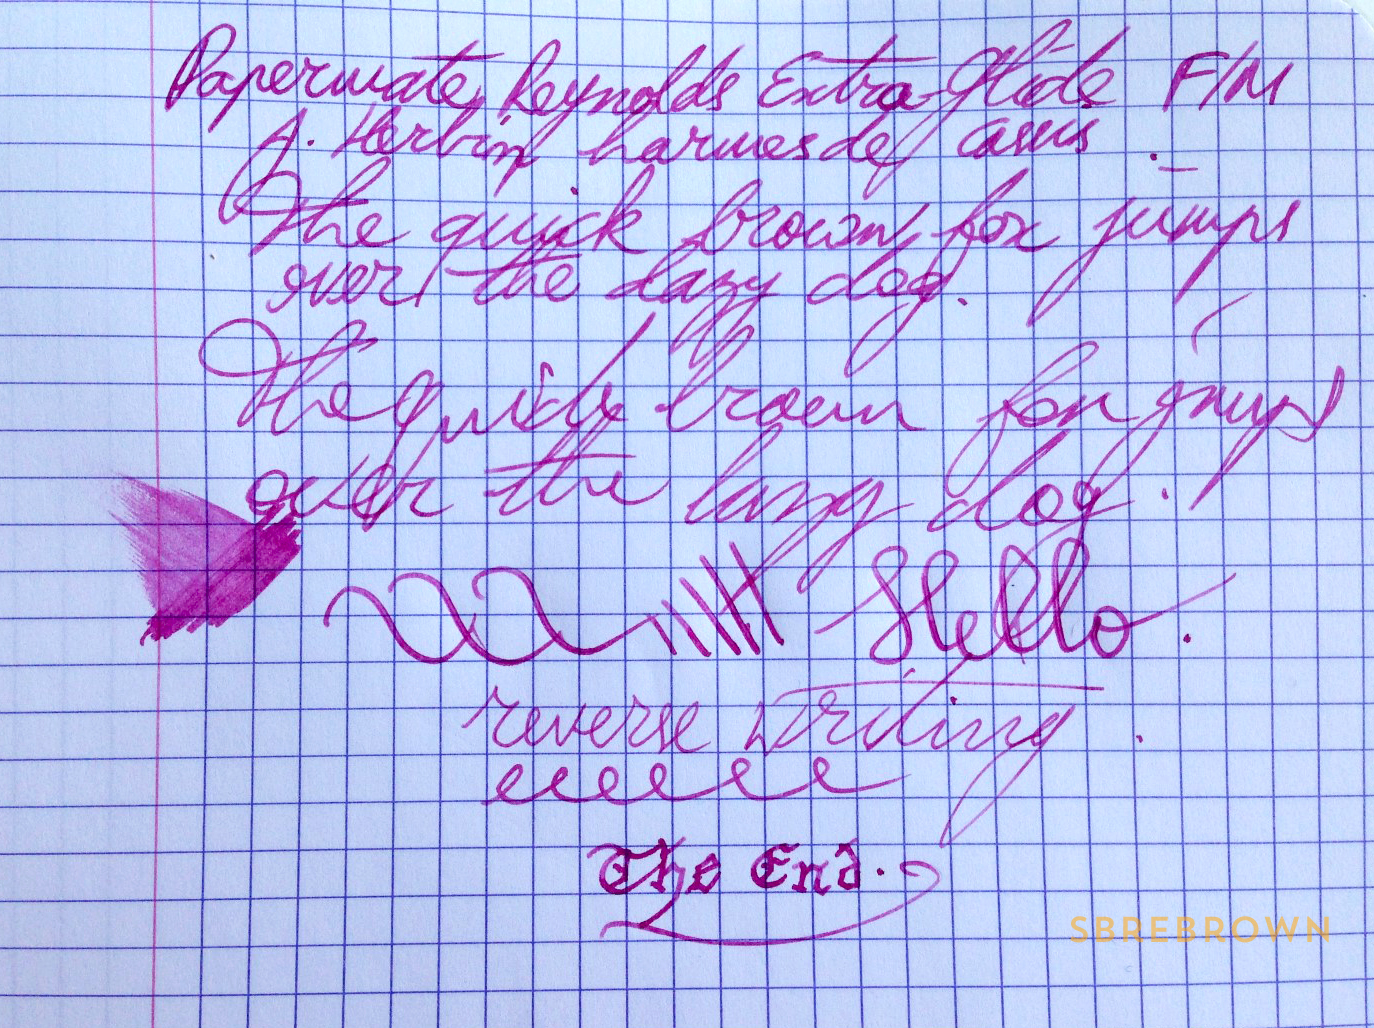 Papermate, Reynolds Extra-Glide F/M
J. Herbin, Larmes de cassis.
The quick brown fox jumps
over the lazy dog.
The quick brown fox jumps
over the lazy dog.
Hello.
reverse writing.
eeeeee
The End.
SBREBROWN